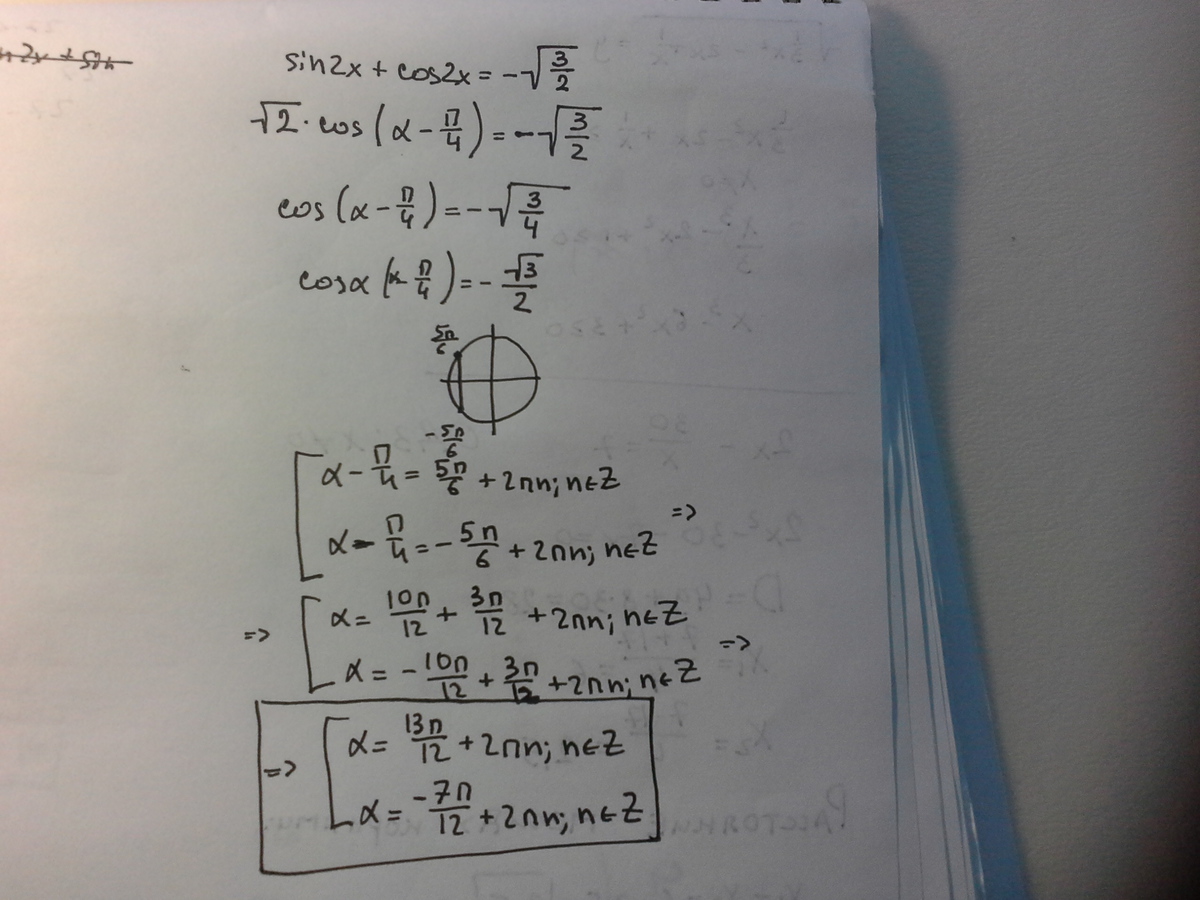 sin2x + cos2x = -√(3/2)
√2 · cos(α - π/4) = -√(3/2)
cos(α - π/4) = -√(3/4)
cosα(α - π/4) = - √3/2
5π/6
-5π/6
[ α - π/4 = 5π/6 + 2πn; n∈Z
α - π/4 = - 5π/6 + 2πn; n∈Z =>
=> [ α = 10π/12 + 3π/12 + 2πn; n∈Z
α = - 10π/12 + 3π/12 + 2πn; n∈Z =>
=> [ α = 13π/12 + 2πn; n∈Z
α = -7π/12 + 2πn; n∈Z